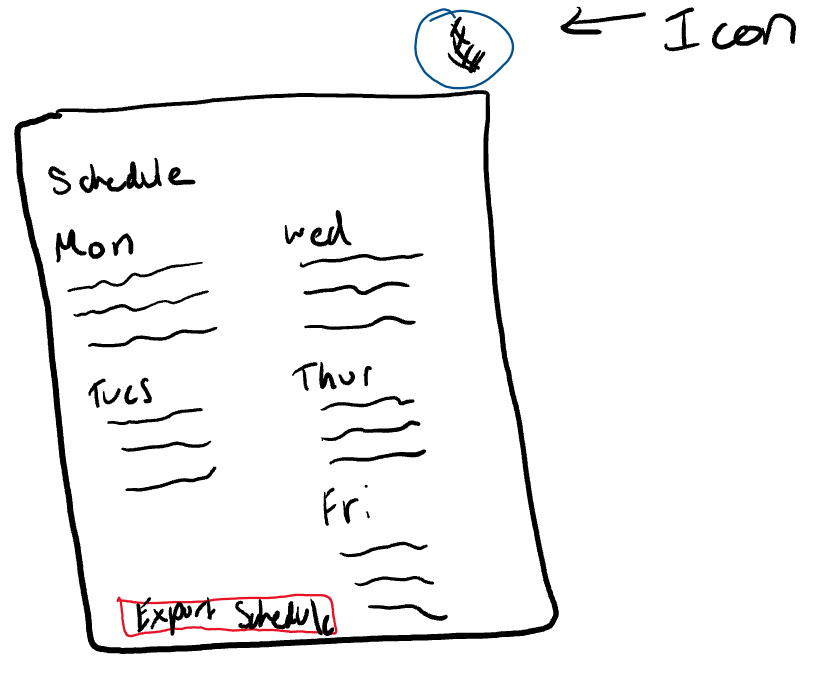 Icon
Schedule
Mon
Wed
Tues
Thur
Fri
Export Schedule